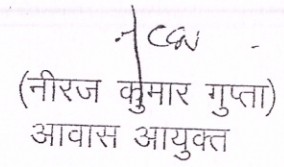 (नीरज कुमार गुप्ता)
आवास आयुक्त